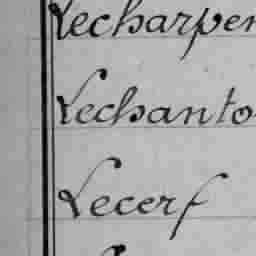 Lecharpen
Lechanto
Lecerf